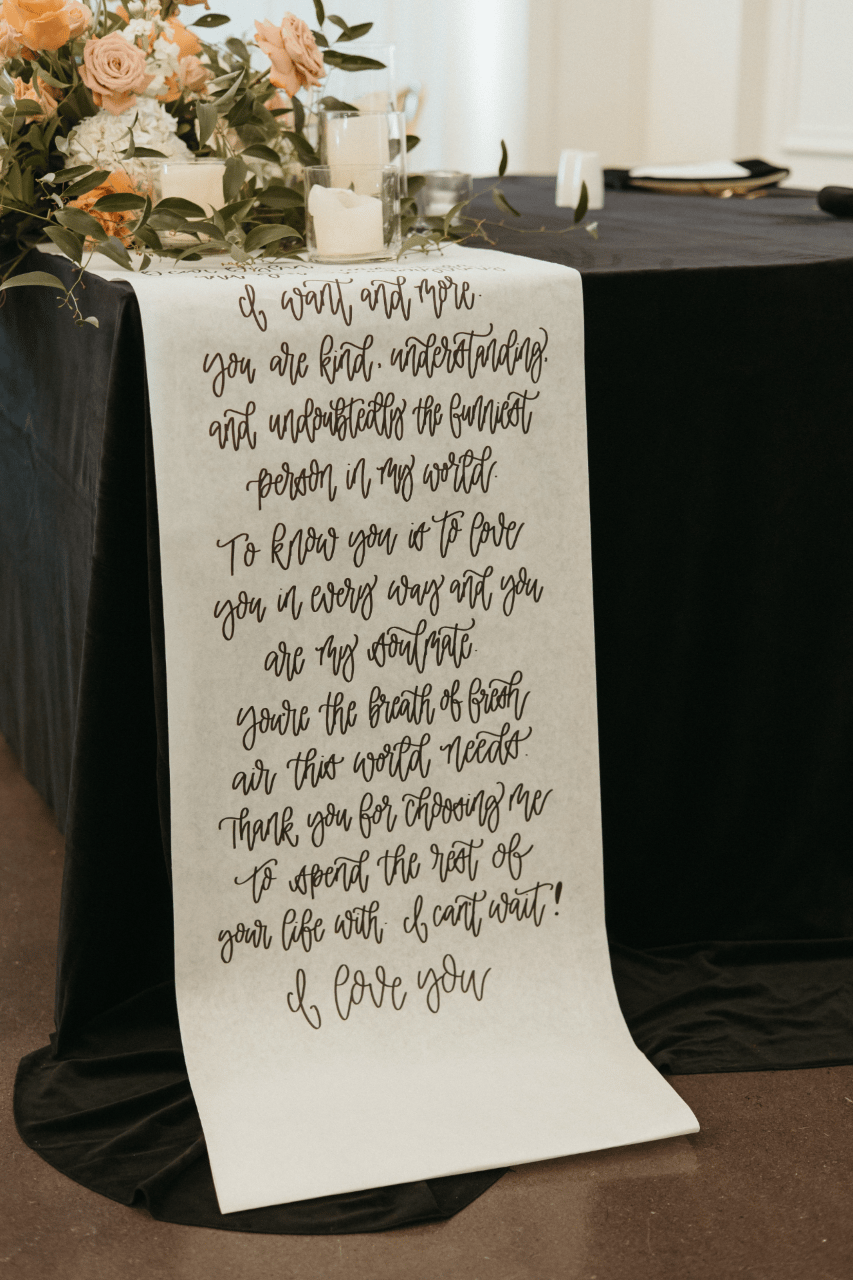 I want and more.
you are kind, understanding,
and undoubtedly the funniest
person in my world.
To know you is to love
you in every way and you
are my soulmate.
You're the breath of fresh
air this world needs.
Thank you for choosing me
to spend the rest of
your life with. I can't wait!
I love you